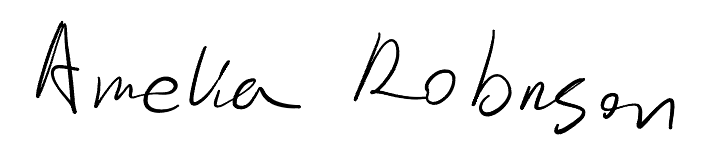 Amelia Robinson